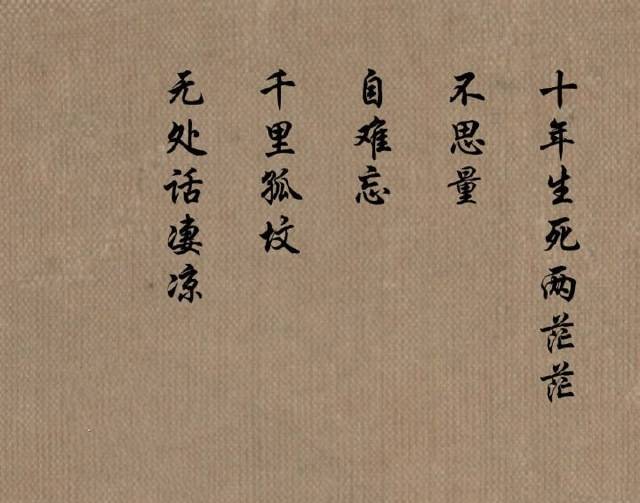 十年生死两茫茫
不思量
自难忘
千里孤坟
无处话凄凉